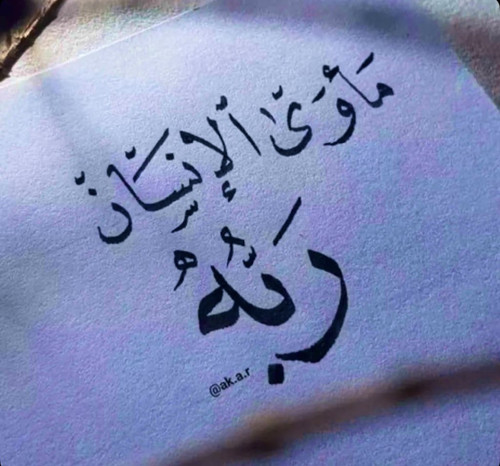 مَأوَىٰ ٱلإِنسَان
رَبُّهُ
@ak.a.r